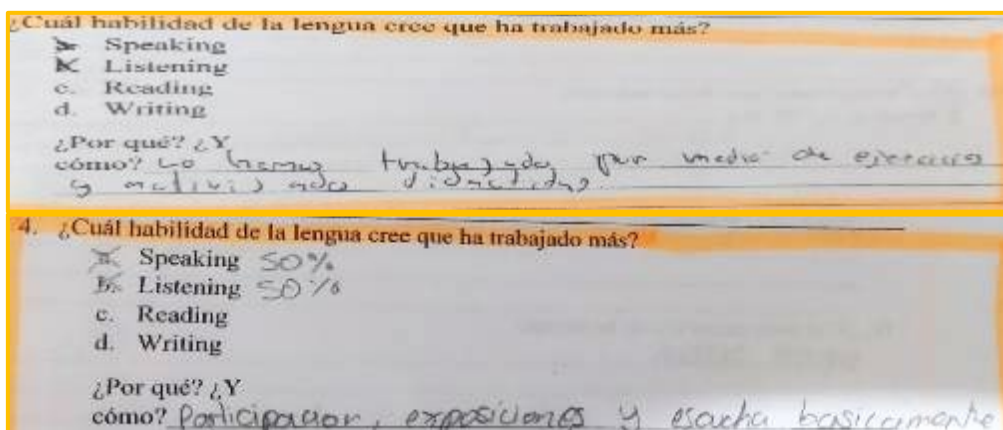 ¿Cuál habilidad de la lengua cree que ha trabajado más?
a. Speaking
b. Listening
c. Reading
d. Writing
¿Por qué? ¿Y
cómo? Lo hemos trabajado por medio de ejercicios
y actividades didactidas
4. ¿Cuál habilidad de la lengua cree que ha trabajado más?
a. Speaking 50%
b. Listening 50%
c. Reading
d. Writing
¿Por qué? ¿Y
cómo? Participacion, exposiciones y escucha basicamente